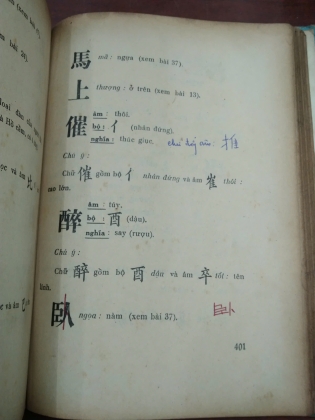 馬 mã: ngựa (xem bài 37).
上 thượng: ở trên (xem bài 13).
催 âm: thôi.
bộ: 亻 (nhân đứng).
nghĩa: thúc giục.
Chú ý:
Chữ 催 gồm bộ 亻 nhân đứng và âm 崔 thôi:
cao lớn.
醉 âm: túy.
bộ: 酉 (dậu).
nghĩa: say (rượu).
Chú ý:
Chữ 醉 gồm bộ 酉 dậu và âm 卒 tốt: tên
lính.
臥 ngọa: nằm (xem bài 37).
401